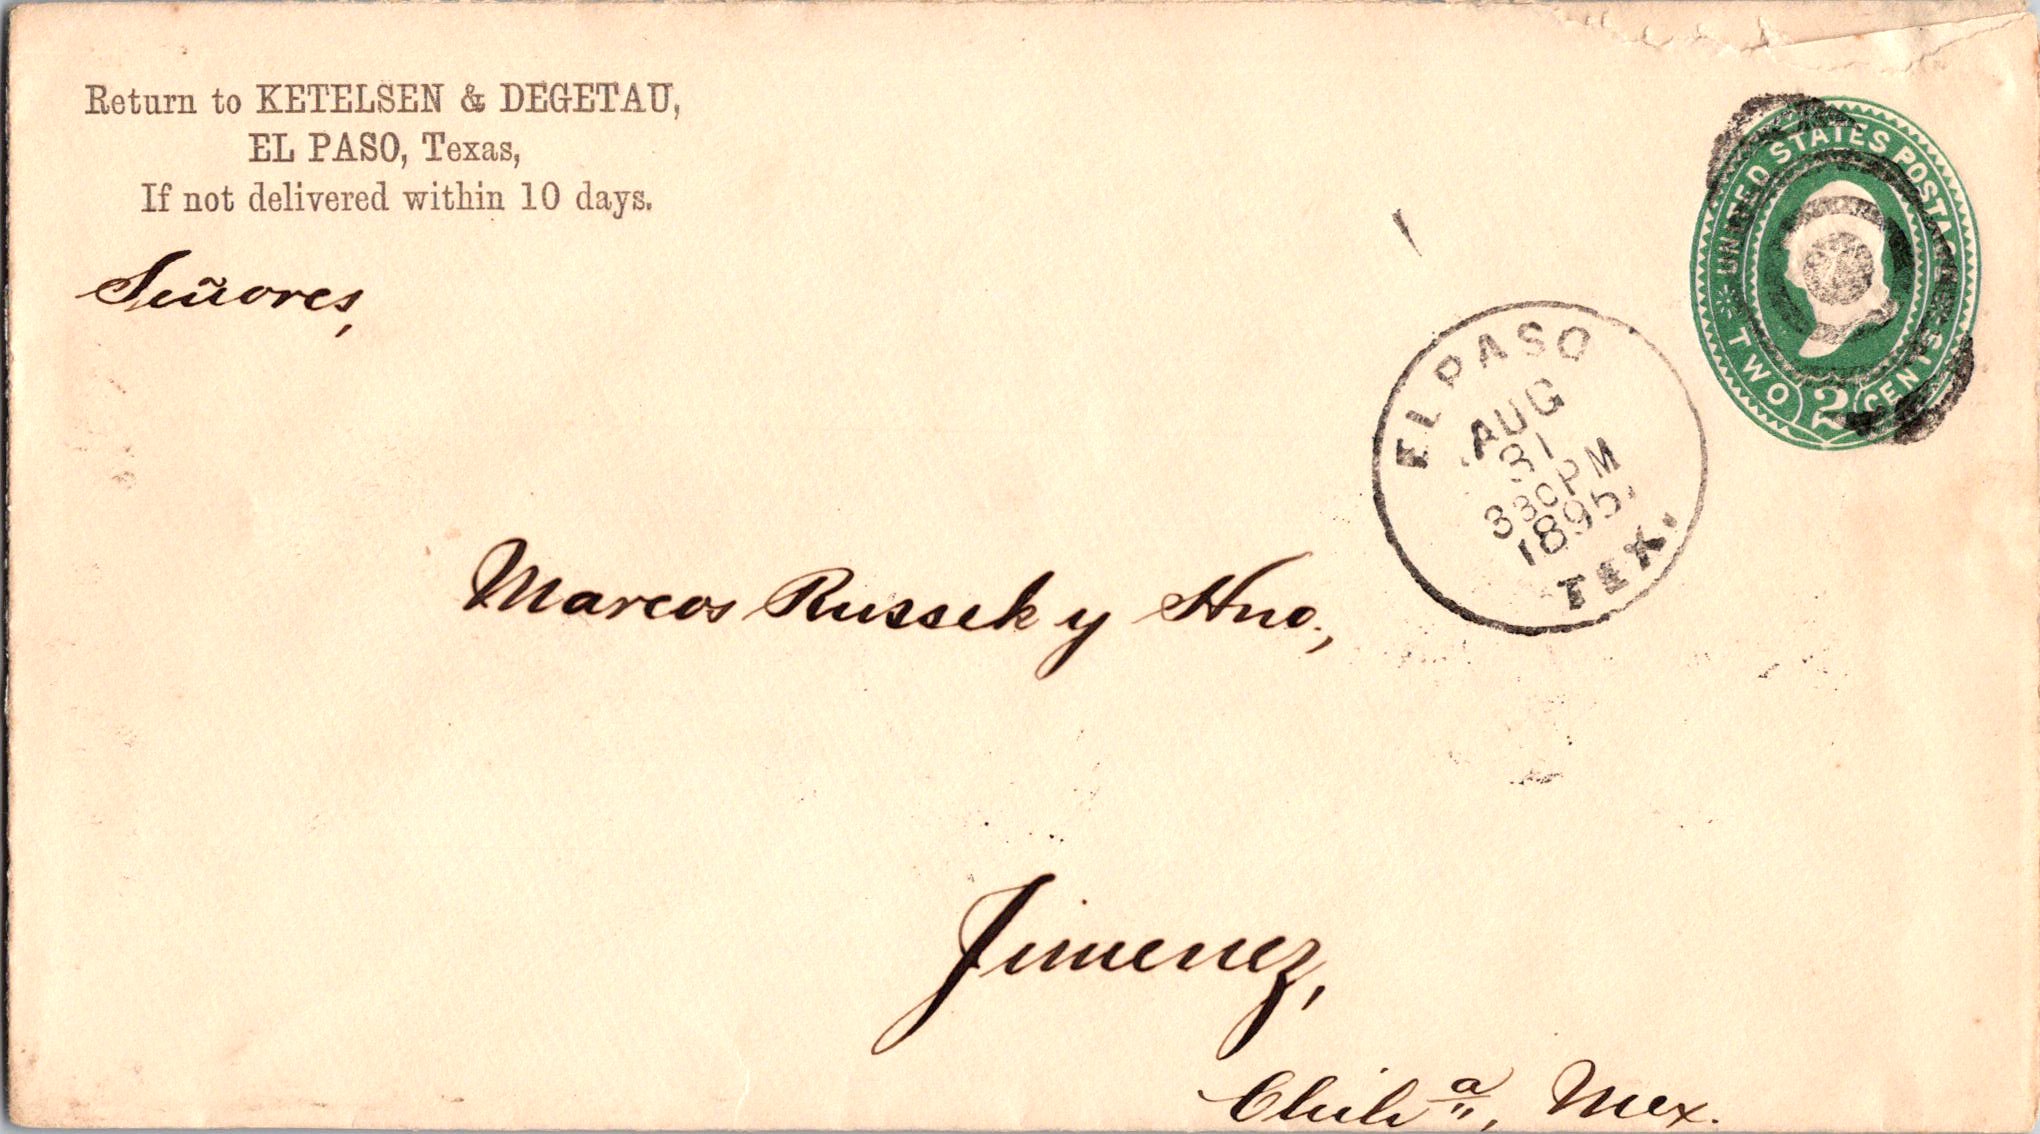 Return to KETELSEN & DEGETAU,
EL PASO, Texas,
If not delivered within 10 days.
UNITED STATES POSTAGE
TWO 2 CENTS
Señores,
EL PASO
AUG
31
330PM
1895.
TEX.
Marcos Russek y Hno.,
Jimenez,
Chihª, Mex.